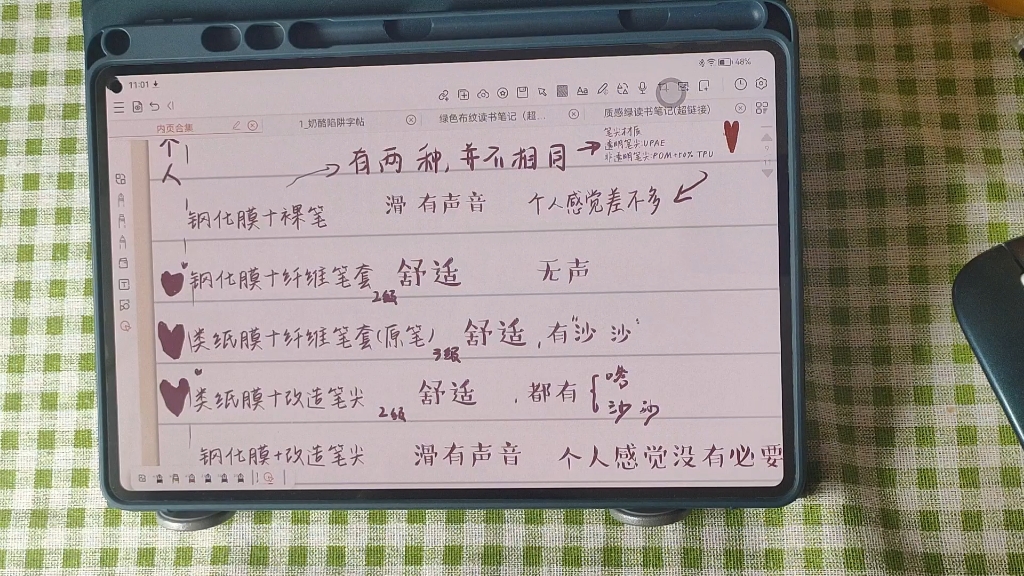 11:01
48%
内页合集
1_奶酪陷阱字帖
绿色布纹读书笔记（超...
质感绿读书笔记(超链接)
个人
有两种,并不相同
笔尖材质
透明笔尖:UPAE
非透明笔尖:POM+10% TPU
钢化膜+裸笔 滑 有声音 个人感觉差不多
钢化膜+纤维笔套 舒适 无声
2级
类纸膜+纤维笔套(原笔) 舒适,有"沙沙"
3级
类纸膜+改造笔尖 舒适,都有{嗒 沙沙
2级
钢化膜+改造笔尖 滑有声音 个人感觉没有必要